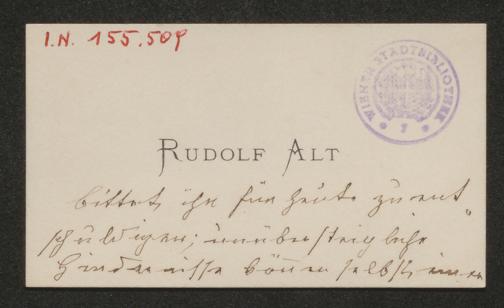 I.N. 155.509
WIENER STADTBIBLIOTHEK
RUDOLF ALT
bittet ihn für heute zu ent„
schuldigen; unübersteigliche
Hindernisse können selbst einen